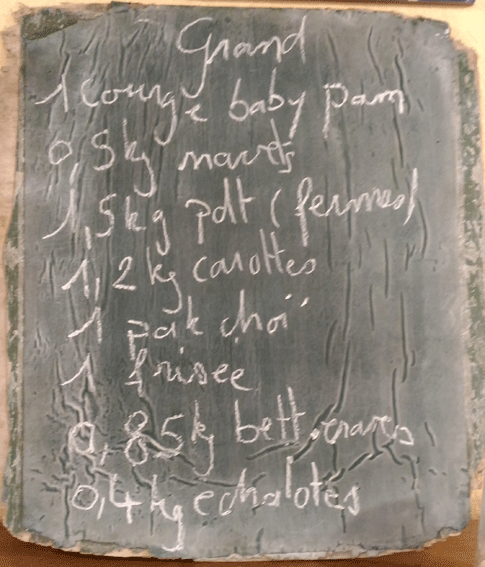 Grand
1 courge baby pam
0,5kg navets
1,5kg pdt (fermes)
1,2kg carottes
1 pak choï
1 frisée
0,85kg betteraves
0,4kg echalotes